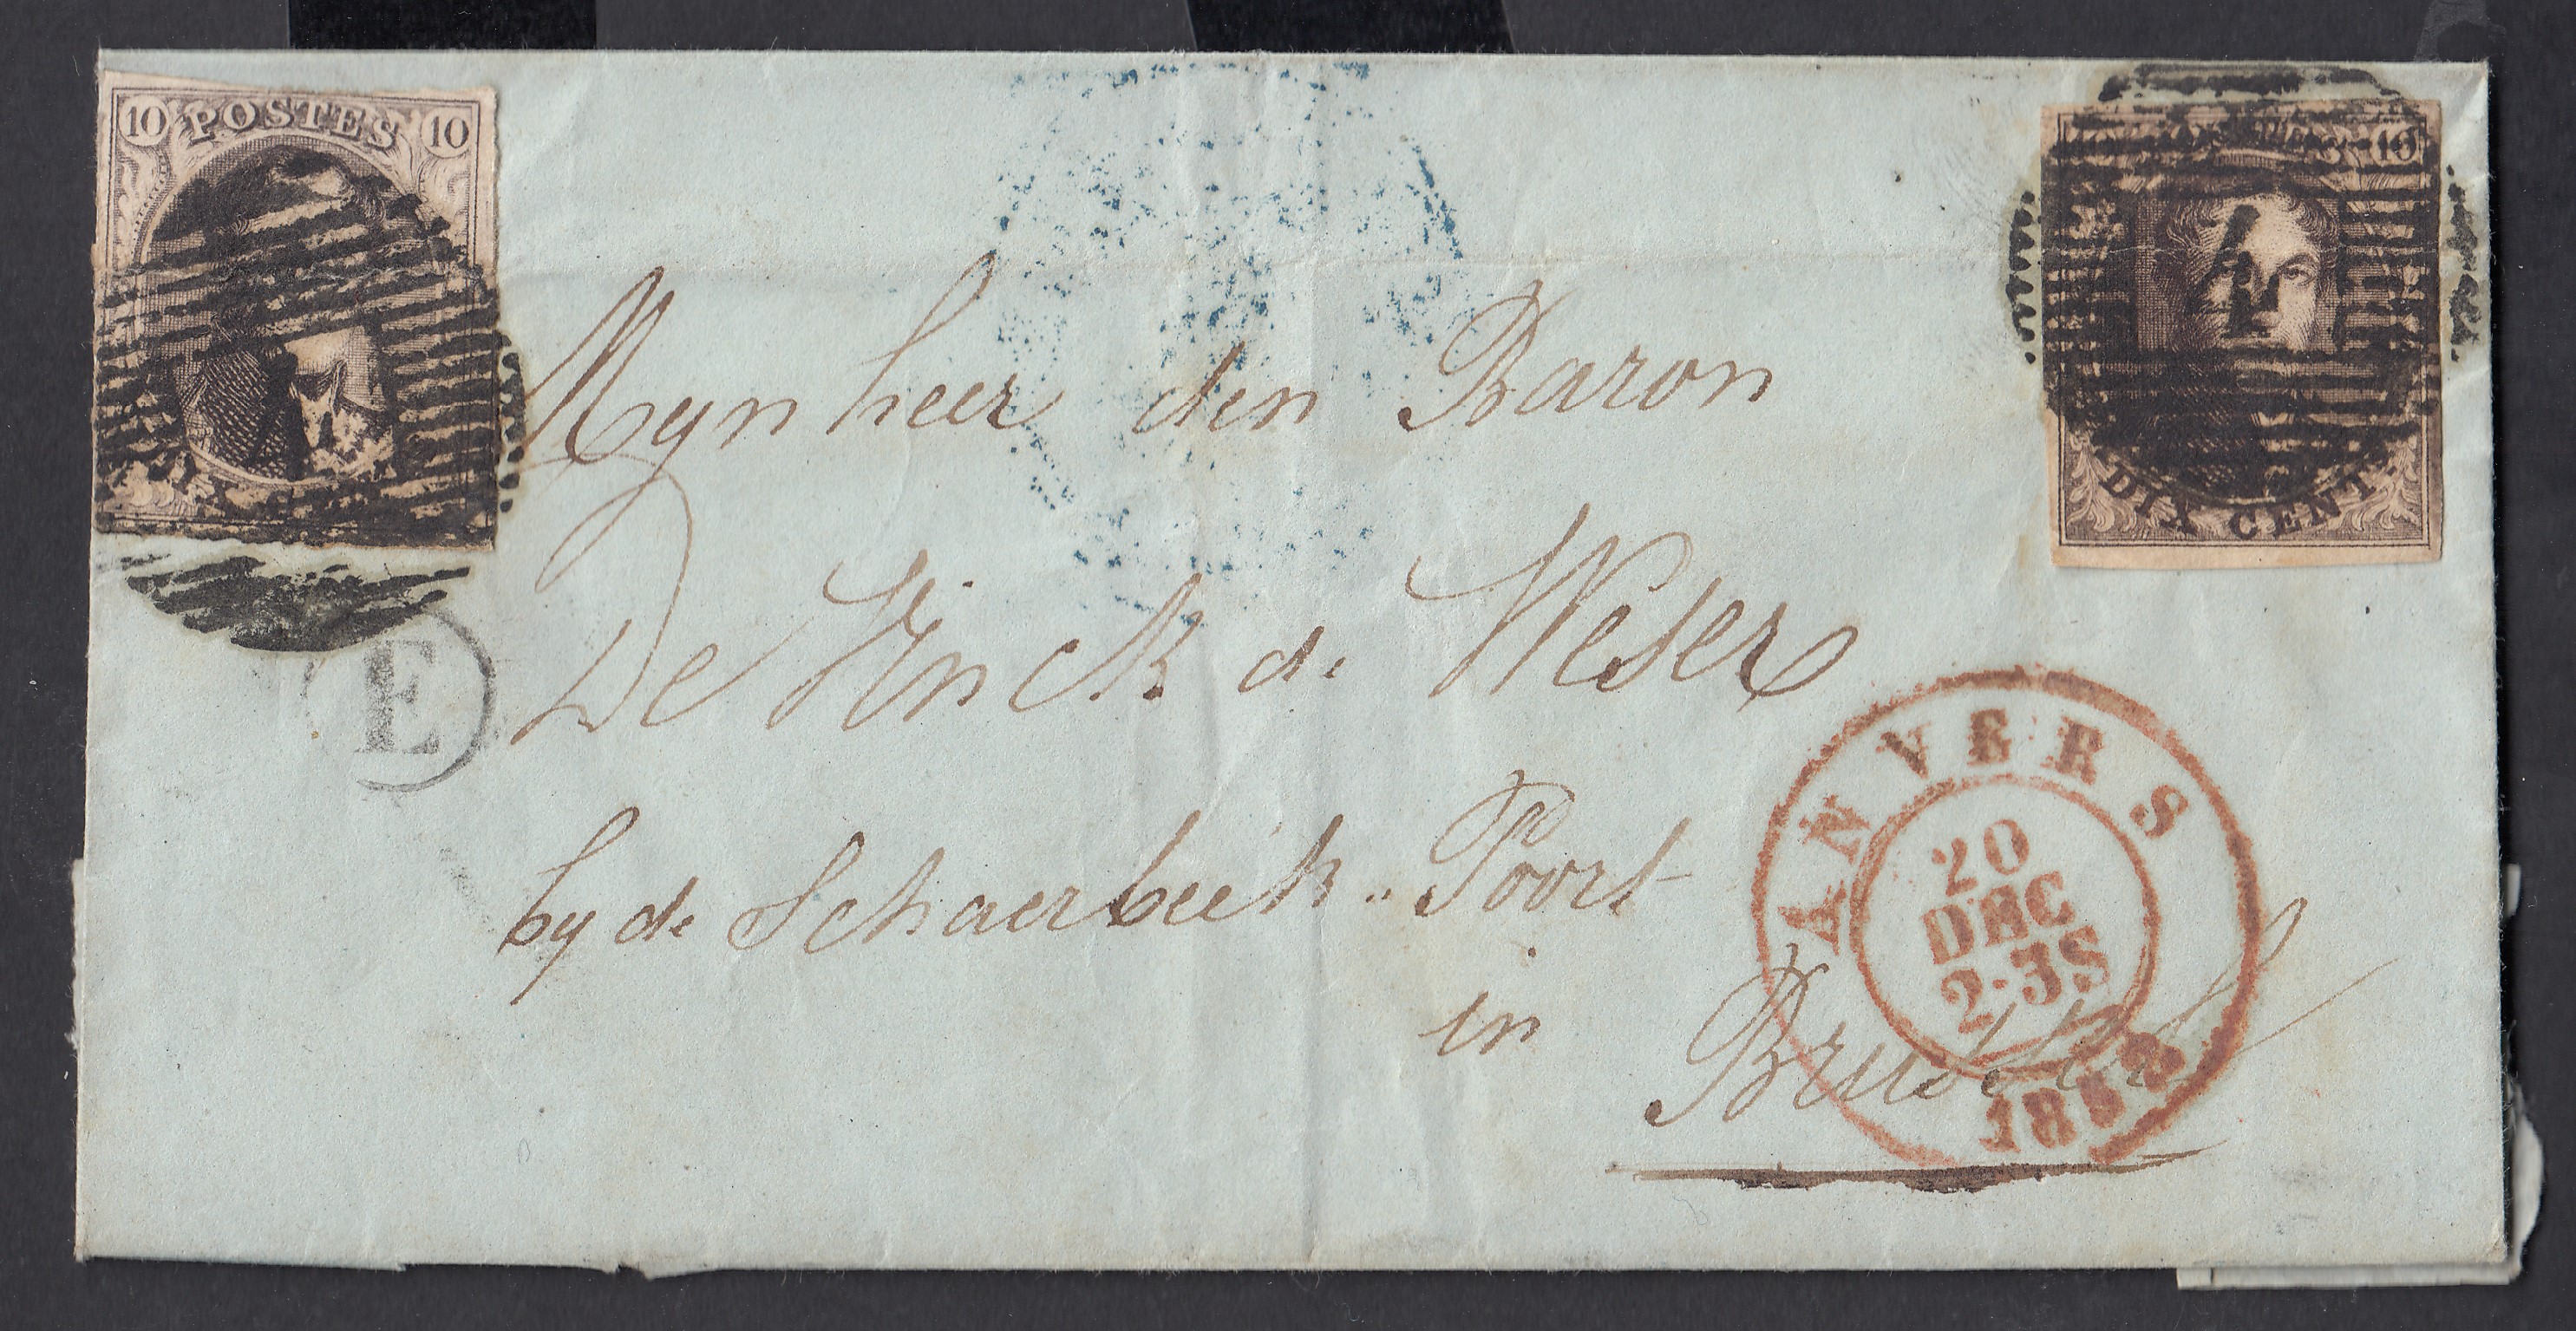 10 POSTES 10
10
4
DIX CENT
Mynheer den Baron
De Vinck de Weser
E
by de Schaerbeek-Poort
in Brussel
ANVERS
20
DEC
2·3S